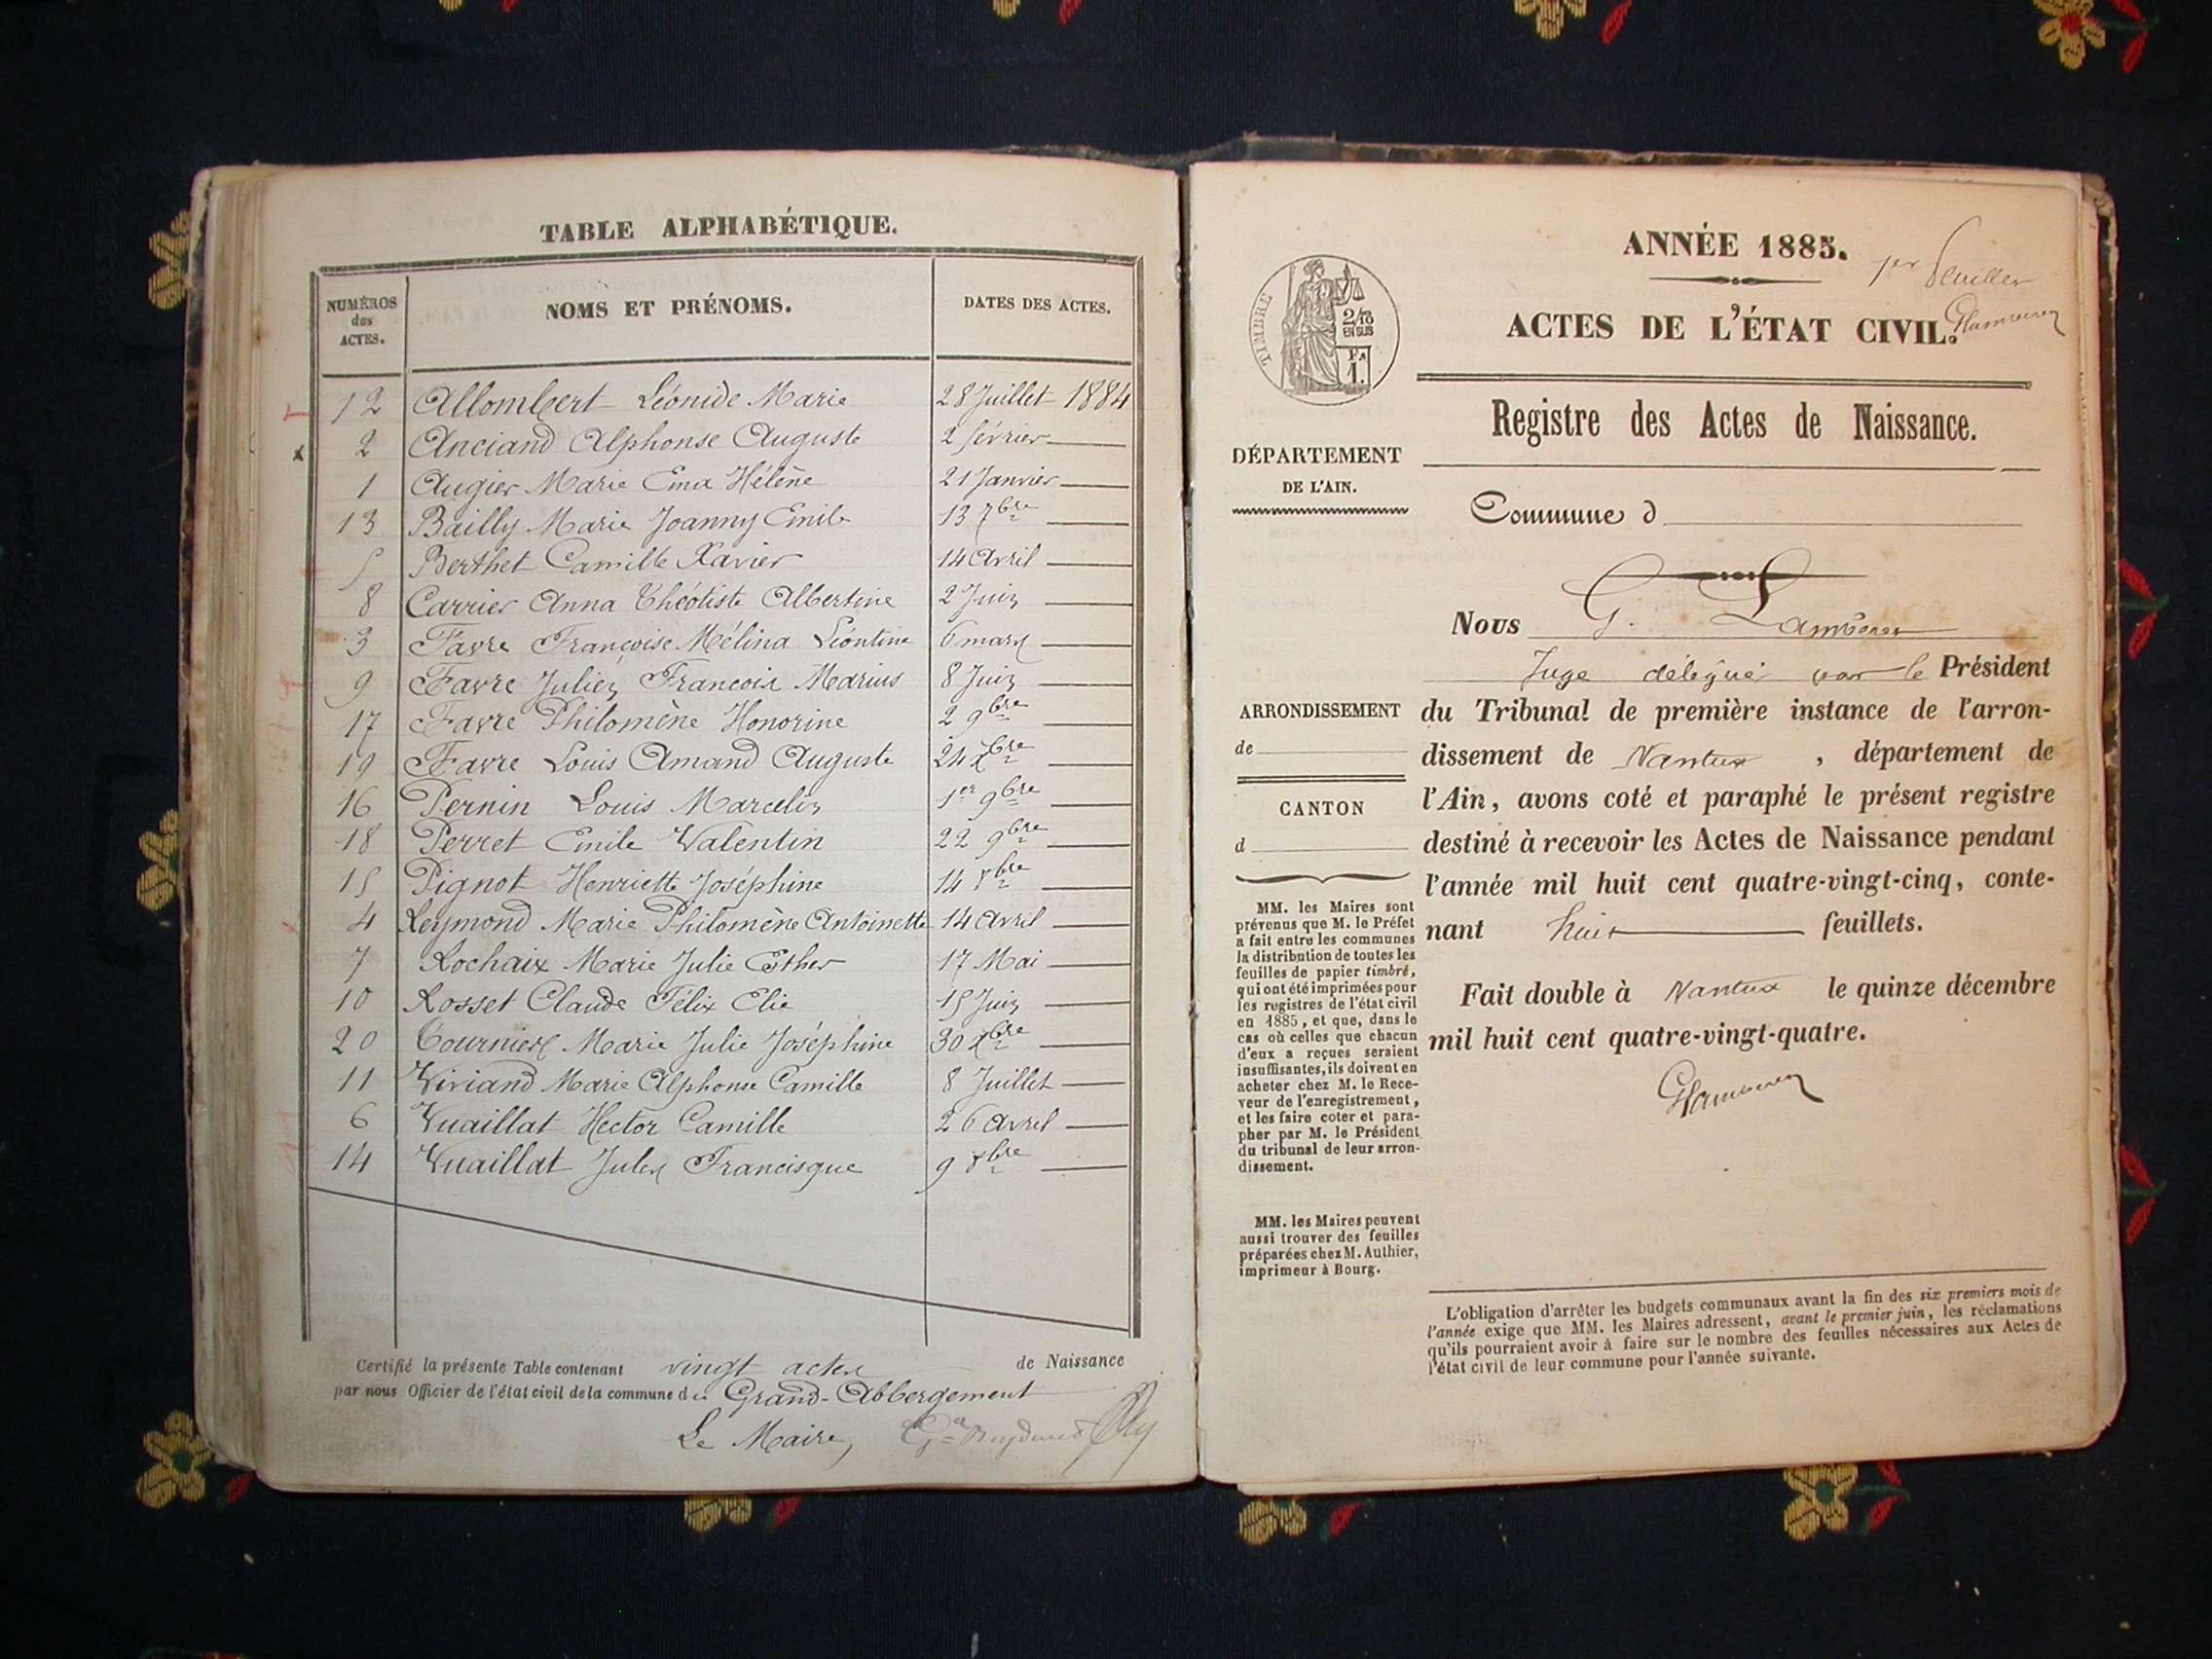 TABLE ALPHABÉTIQUE.
NUMÉROS des ACTES. NOMS ET PRÉNOMS. DATES DES ACTES.
12 Allombert Léonide Marie 28 Juillet 1884
2 Anciand Alphonse Auguste 2 février
1 Augier Marie Ema Hélène 21 Janvier
13 Bailly Marie Joanny Emile 13 7bre
5 Berthet Camille Xavier 14 Avril
8 Carrier Anna Théotiste Albertine 2 Juin
3 Favre Françoise Mélina Léontine 6 mars
9 Favre Julien François Marius 8 Juin
17 Favre Philomène Honorine 2 9bre
19 Favre Louis Amand Auguste 24 Xbre
16 Pernin Louis Marcelin 1er 9bre
18 Perret Emile Valentin 22 9bre
15 Pignot Henriette Joséphine 14 8bre
4 Reymond Marie Philomène Antoinette 14 Avril
7 Rochaix Marie Julie Esther 17 Mai
10 Rosset Claude Félix Elie 15 Juin
20 Tournier Marie Julie Joséphine 30 Xbre
11 Viviand Marie Alphonse Camille 8 Juillet
6 Vuaillat Hector Camille 26 Avril
14 Vuaillat Jules Francisque 9 8bre
Certifié la présente Table contenant vingt actes de Naissance
par nous Officier de l'état civil de la commune du Grand-Abbergement
Le Maire,
ANNÉE 1885.
1er feuillet
ACTES DE L'ÉTAT CIVIL.
TIMBRE
2/10
EN SUS
1.
Registre des Actes de Naissance.
DÉPARTEMENT
DE L'AIN.
Commune d
Nous G.
Juge délégué par le Président
ARRONDISSEMENT
de
CANTON
d
du Tribunal de première instance de l'arron-
dissement de Nantua, département de
l'Ain, avons coté et paraphé le présent registre
destiné à recevoir les Actes de Naissance pendant
l'année mil huit cent quatre-vingt-cinq, conte-
nant huit feuillets.
Fait double à Nantua le quinze décembre
mil huit cent quatre-vingt-quatre.
MM. les Maires sont
prévenus que M. le Préfet
a fait entre les communes
la distribution de toutes les
feuilles de papier timbré,
qui ont été imprimées pour
les registres de l'état civil
en 1885, et que, dans le
cas où celles que chacun
d'eux a reçues seraient
insuffisantes, ils doivent en
acheter chez M. le Rece-
veur de l'enregistrement,
et les faire coter et para-
pher par M. le Président
du tribunal de leur arron-
dissement.
MM. les Maires peuvent
aussi trouver des feuilles
préparées chez M. Authier,
imprimeur à Bourg.
L'obligation d'arrêter les budgets communaux avant la fin des six premiers mois de
l'année exige que MM. les Maires adressent, avant le premier juin, les réclamations
qu'ils pourraient avoir à faire sur le nombre des feuilles nécessaires aux Actes de
l'état civil de leur commune pour l'année suivante.